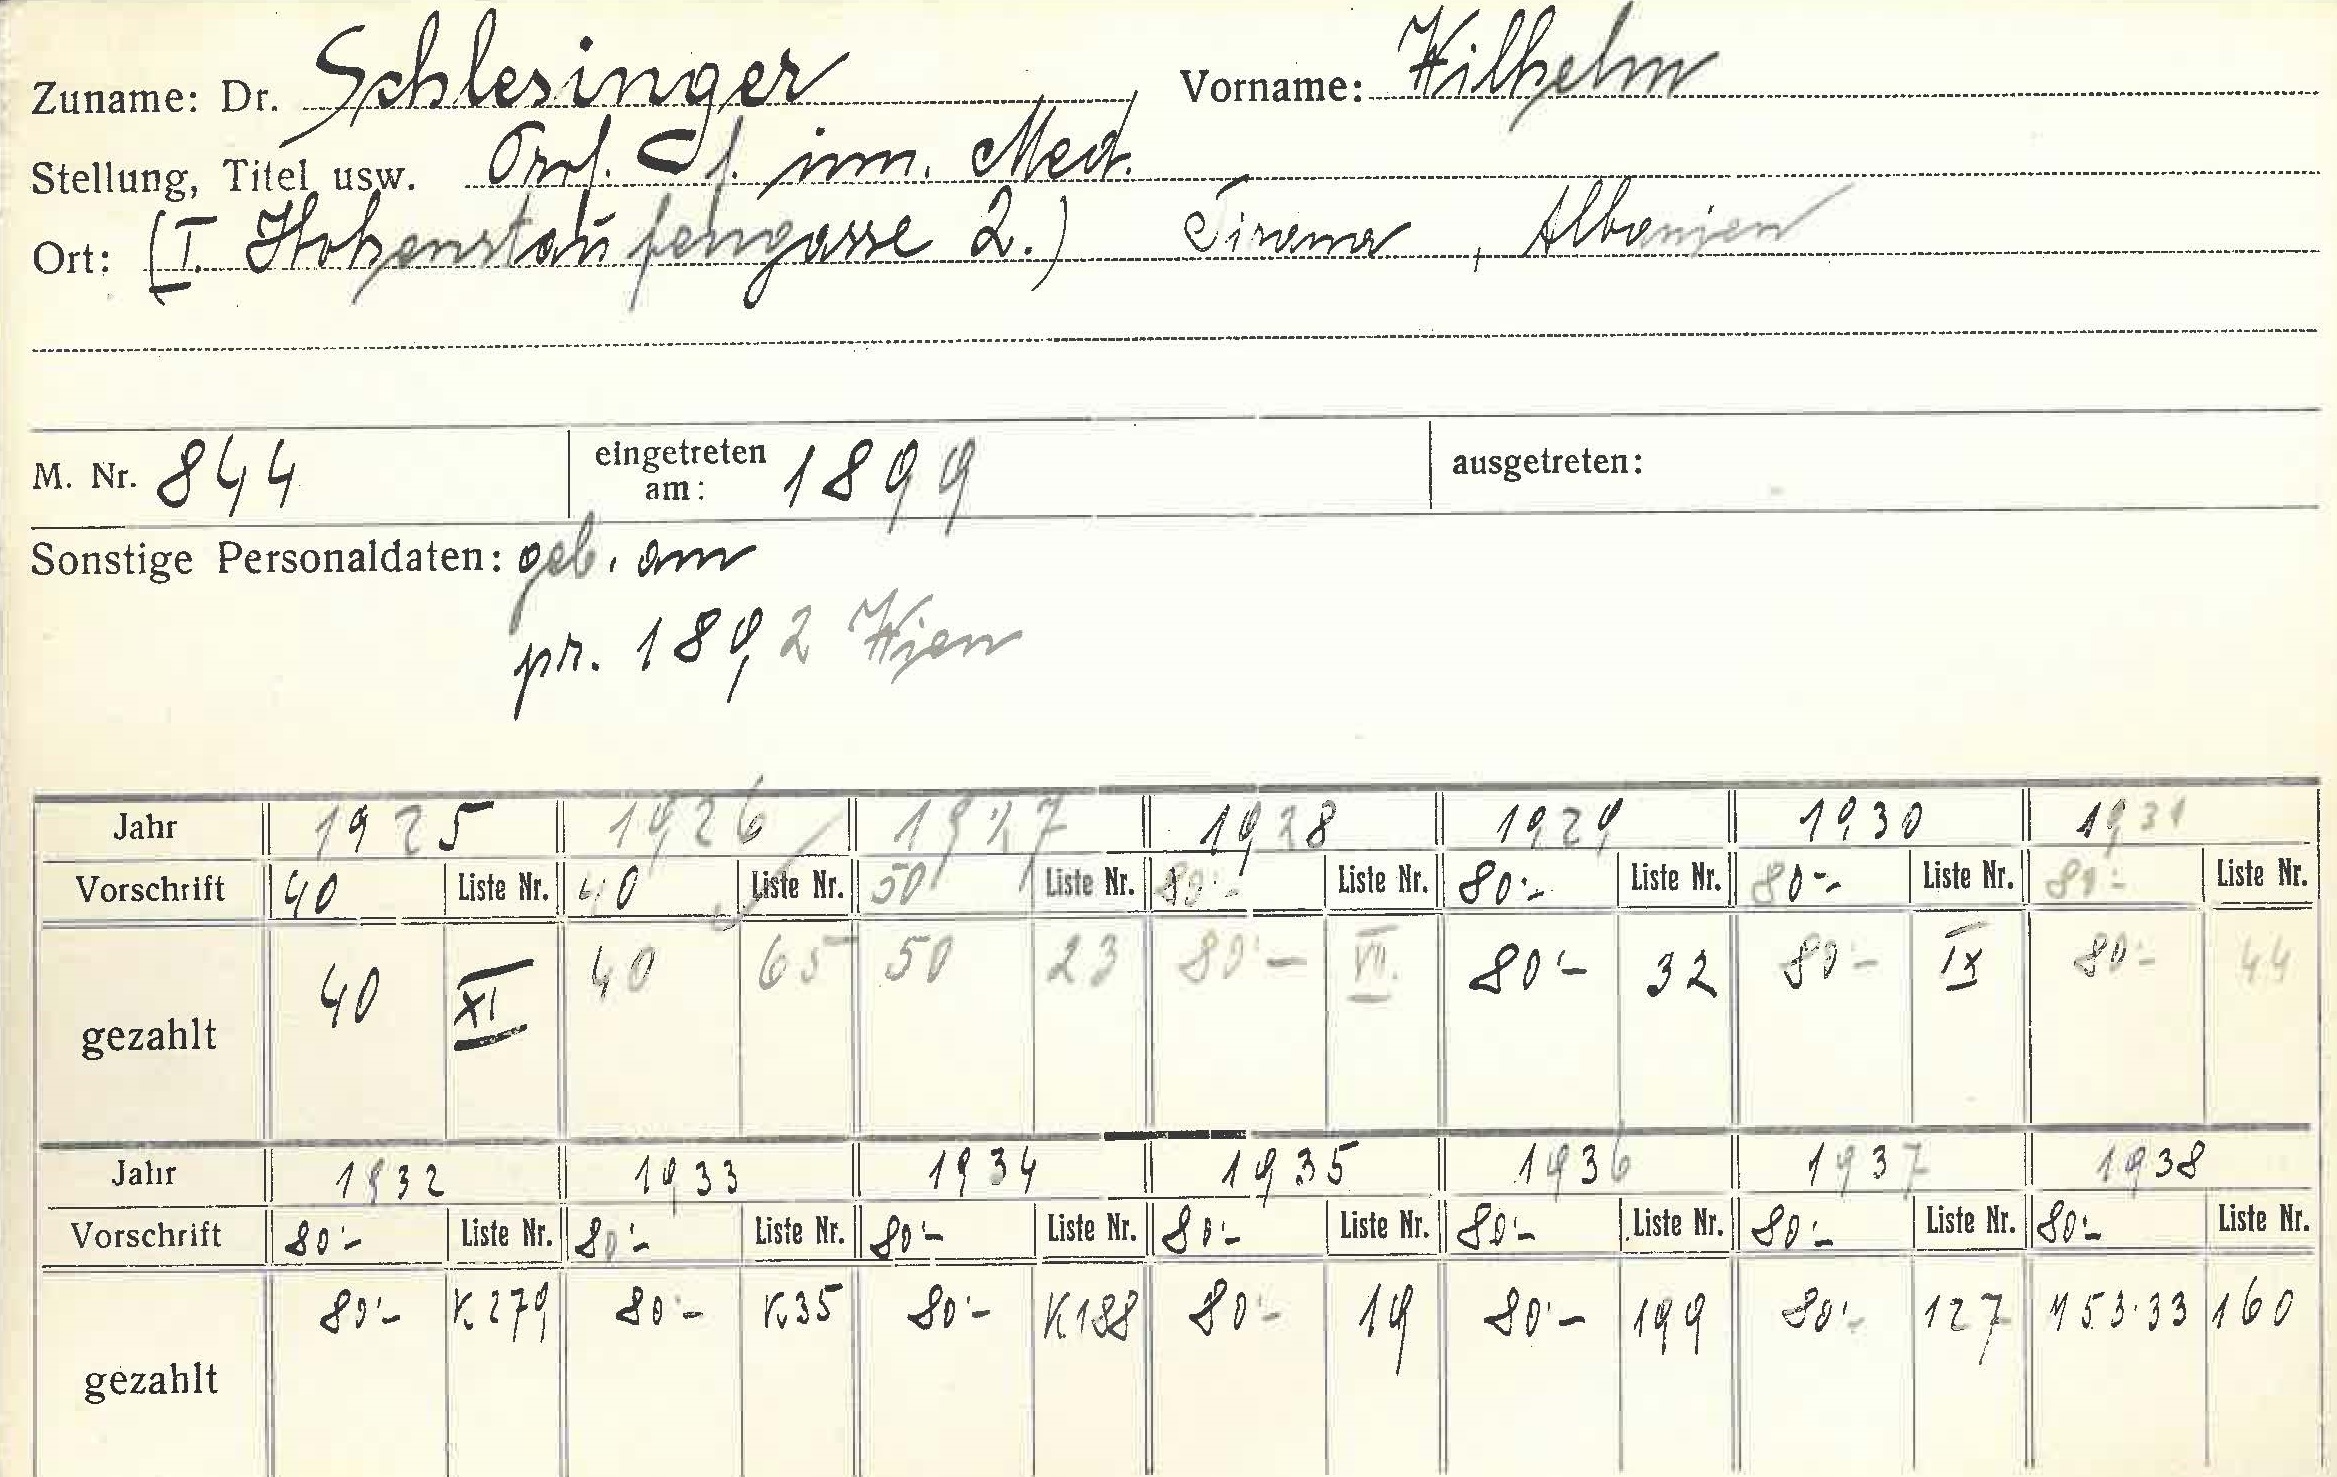 Zuname: Dr. Schlesinger Vorname: Wilhelm
Stellung, Titel usw. Prof. f. inn. Med.
Ort: (I. Hohenstaufengasse 2.) Tirana, Albanien
M. Nr. 844 eingetreten am: 1899 ausgetreten:
Sonstige Personaldaten: geb. am
pr. 1892 Wien
Jahr 1925 1926 1927 1928 1929 1930 1931
Vorschrift 40 Liste Nr. 40 Liste Nr. 50 Liste Nr. 80·- Liste Nr. 80·- Liste Nr. 80·- Liste Nr. 80·- Liste Nr.
gezahlt 40 XI 40 65 50 23 80·- VII. 80·- 32 80·- IX 80·- 44
Jahr 1932 1933 1934 1935 1936 1937 1938
Vorschrift 80·- Liste Nr. 80·- Liste Nr. 80·- Liste Nr. 80·- Liste Nr. 80·- Liste Nr. 80·- Liste Nr. 80·- Liste Nr.
gezahlt 80·- K.279 80·- K.35 80·- K.188 80·- 19 80·- 199 80·- 127 53·33 160